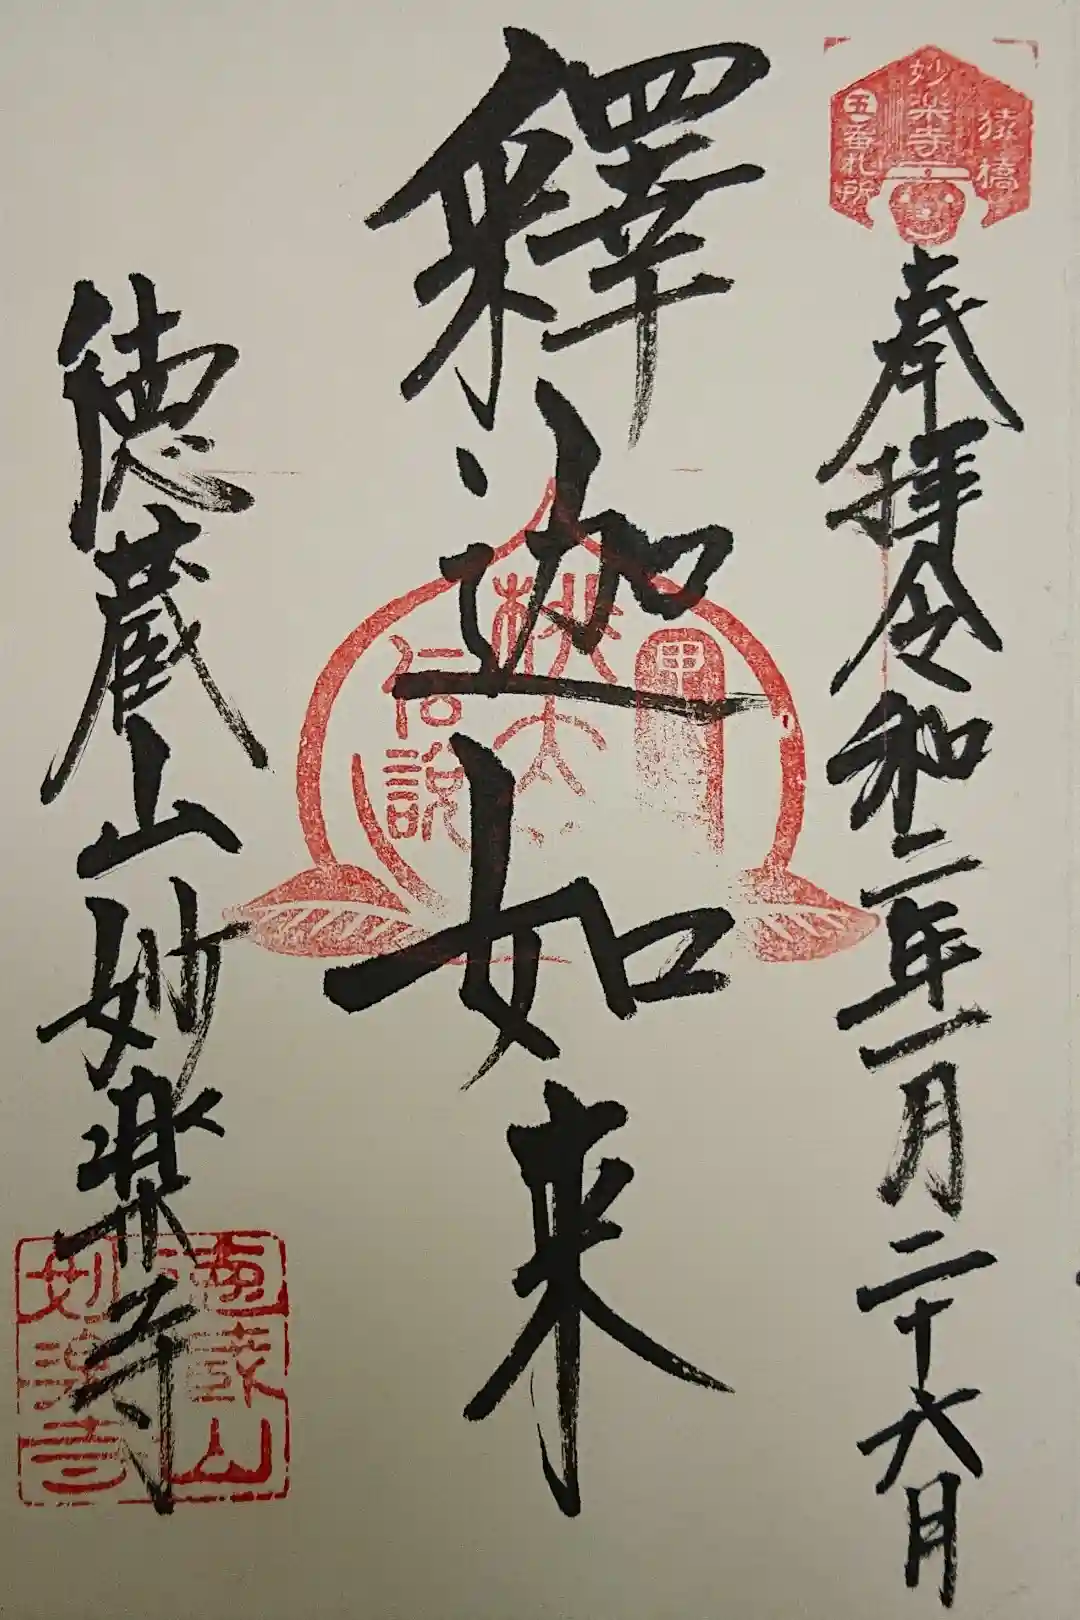 猿橋
妙楽寺
五番札所
奉拝令和二年一月二十六日
釋迦如来
甲州
桃太
伝説
徳蔵山妙楽寺
徳蔵山
妙楽寺